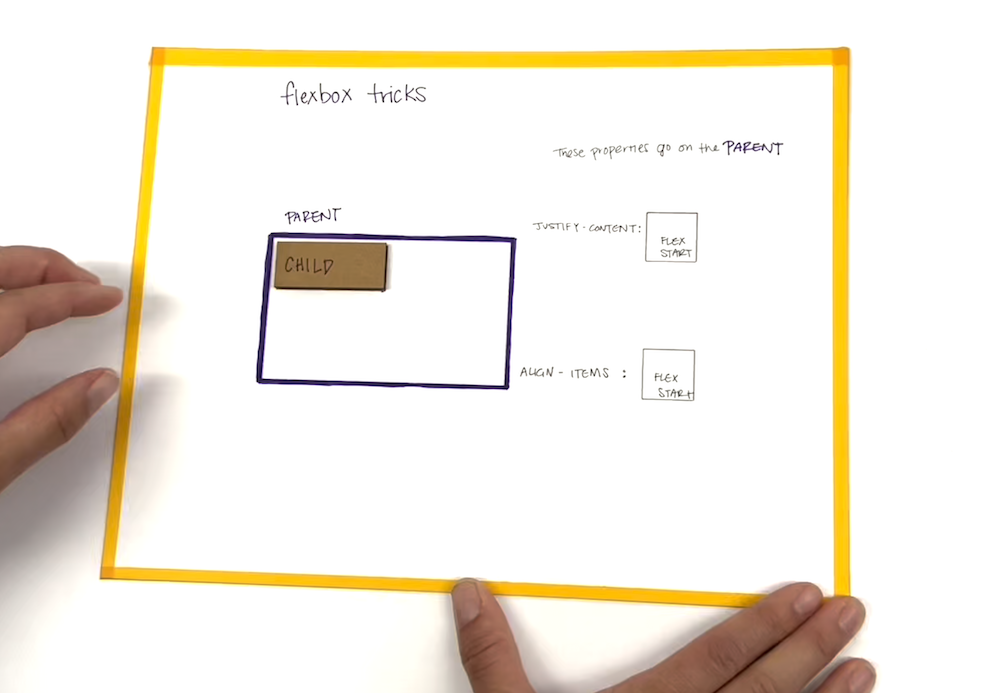 flexbox tricks
These properties go on the PARENT
PARENT
CHILD
JUSTIFY-CONTENT:
FLEX
START
ALIGN-ITEMS :
FLEX
START